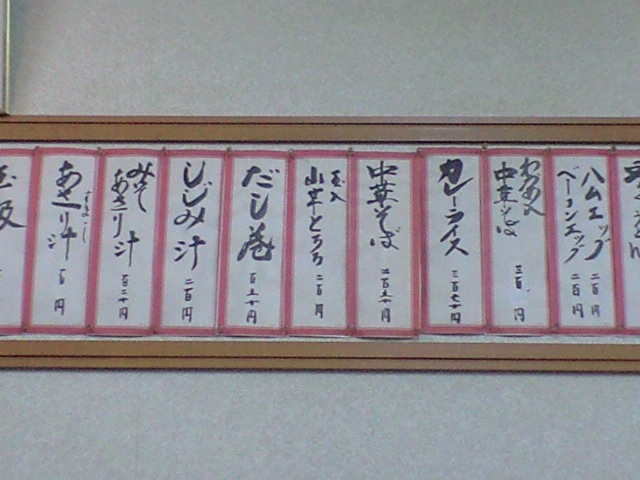 ハムエッグ 二百円
ベーコンエッグ 二百円
わかめ入
中華そば
三百円
カレーライス
三百七十円
中華そば
二百五十円
玉入
山芋とろろ
二百円
だし巻
百五十円
しじみ汁
二百円
みそ
あさり汁
百二十円
すまし
あさり汁
百円